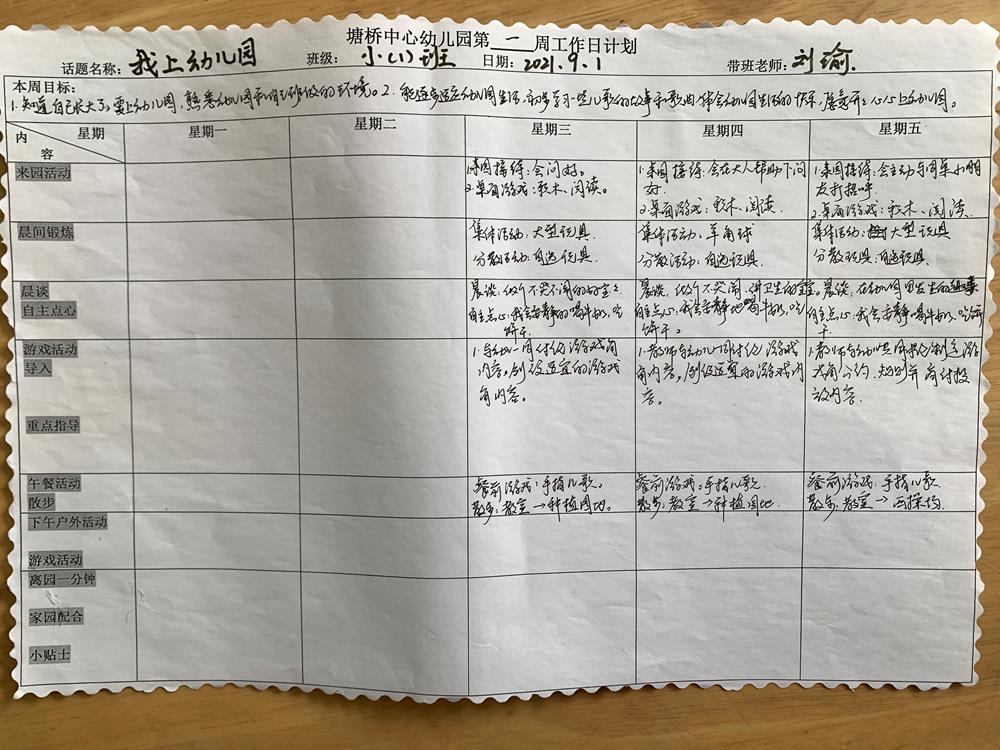 塘桥中心幼儿园第一周工作日计划
话题名称：我上幼儿园 班级：小(1)班 日期：2021.9.1 带班老师：刘瑜.
本周目标：
1.知道自己长大了，要上幼儿园，熟悉幼儿园和自己班级的环境。2.能逐步适应幼儿园生活，学习一些儿歌的故事和歌曲，体会幼儿园生活的快乐，愿意开开心心上幼儿园。
内 容 星期 星期一 星期二 星期三 星期四 星期五
来园活动
1.来园接待：会问好。
2.桌面游戏：积木、阅读。
1.来园接待：会在大人帮助下问
好.
2.桌面游戏：积木、阅读.
1.来园接待：会主动与同桌小朋
友打招呼.
2.桌面游戏：积木、阅读.
晨间锻炼
集体活动：大型玩具.
分散活动：自选玩具.
集体活动：羊角球
分散活动：自选玩具.
集体活动：大型玩具
分散玩具：自选玩具.
晨谈
自主点心
晨谈：做个不哭不闹的好宝宝
自主点心：我会安静的喝牛奶，吃
饼干。
晨谈：做个不哭闹、讲卫生的宝宝.
自主点心：我会安静地喝牛奶，吃
饼干。
晨谈：在幼儿园里发生的
自主点心：我会安静喝牛奶，吃饼
干
游戏活动
导入
重点指导
1.与幼儿一同讨论游戏角
内容，创设适宜的游戏
角内容。
1.教师与幼儿一同讨论游戏
角内容，创设适宜的游戏内
容。
1.教师与幼儿共同制定游
戏角公约、规则并商讨投
放内容.
午餐活动
散步
餐前游戏：手指儿歌.
散步：教室→种植园地。
餐前游戏：手指儿歌.
散步：教室→种植园地.
餐前游戏：手指儿歌
散步：教室→西操场.
下午户外活动
游戏活动
离园一分钟
家园配合
小贴士